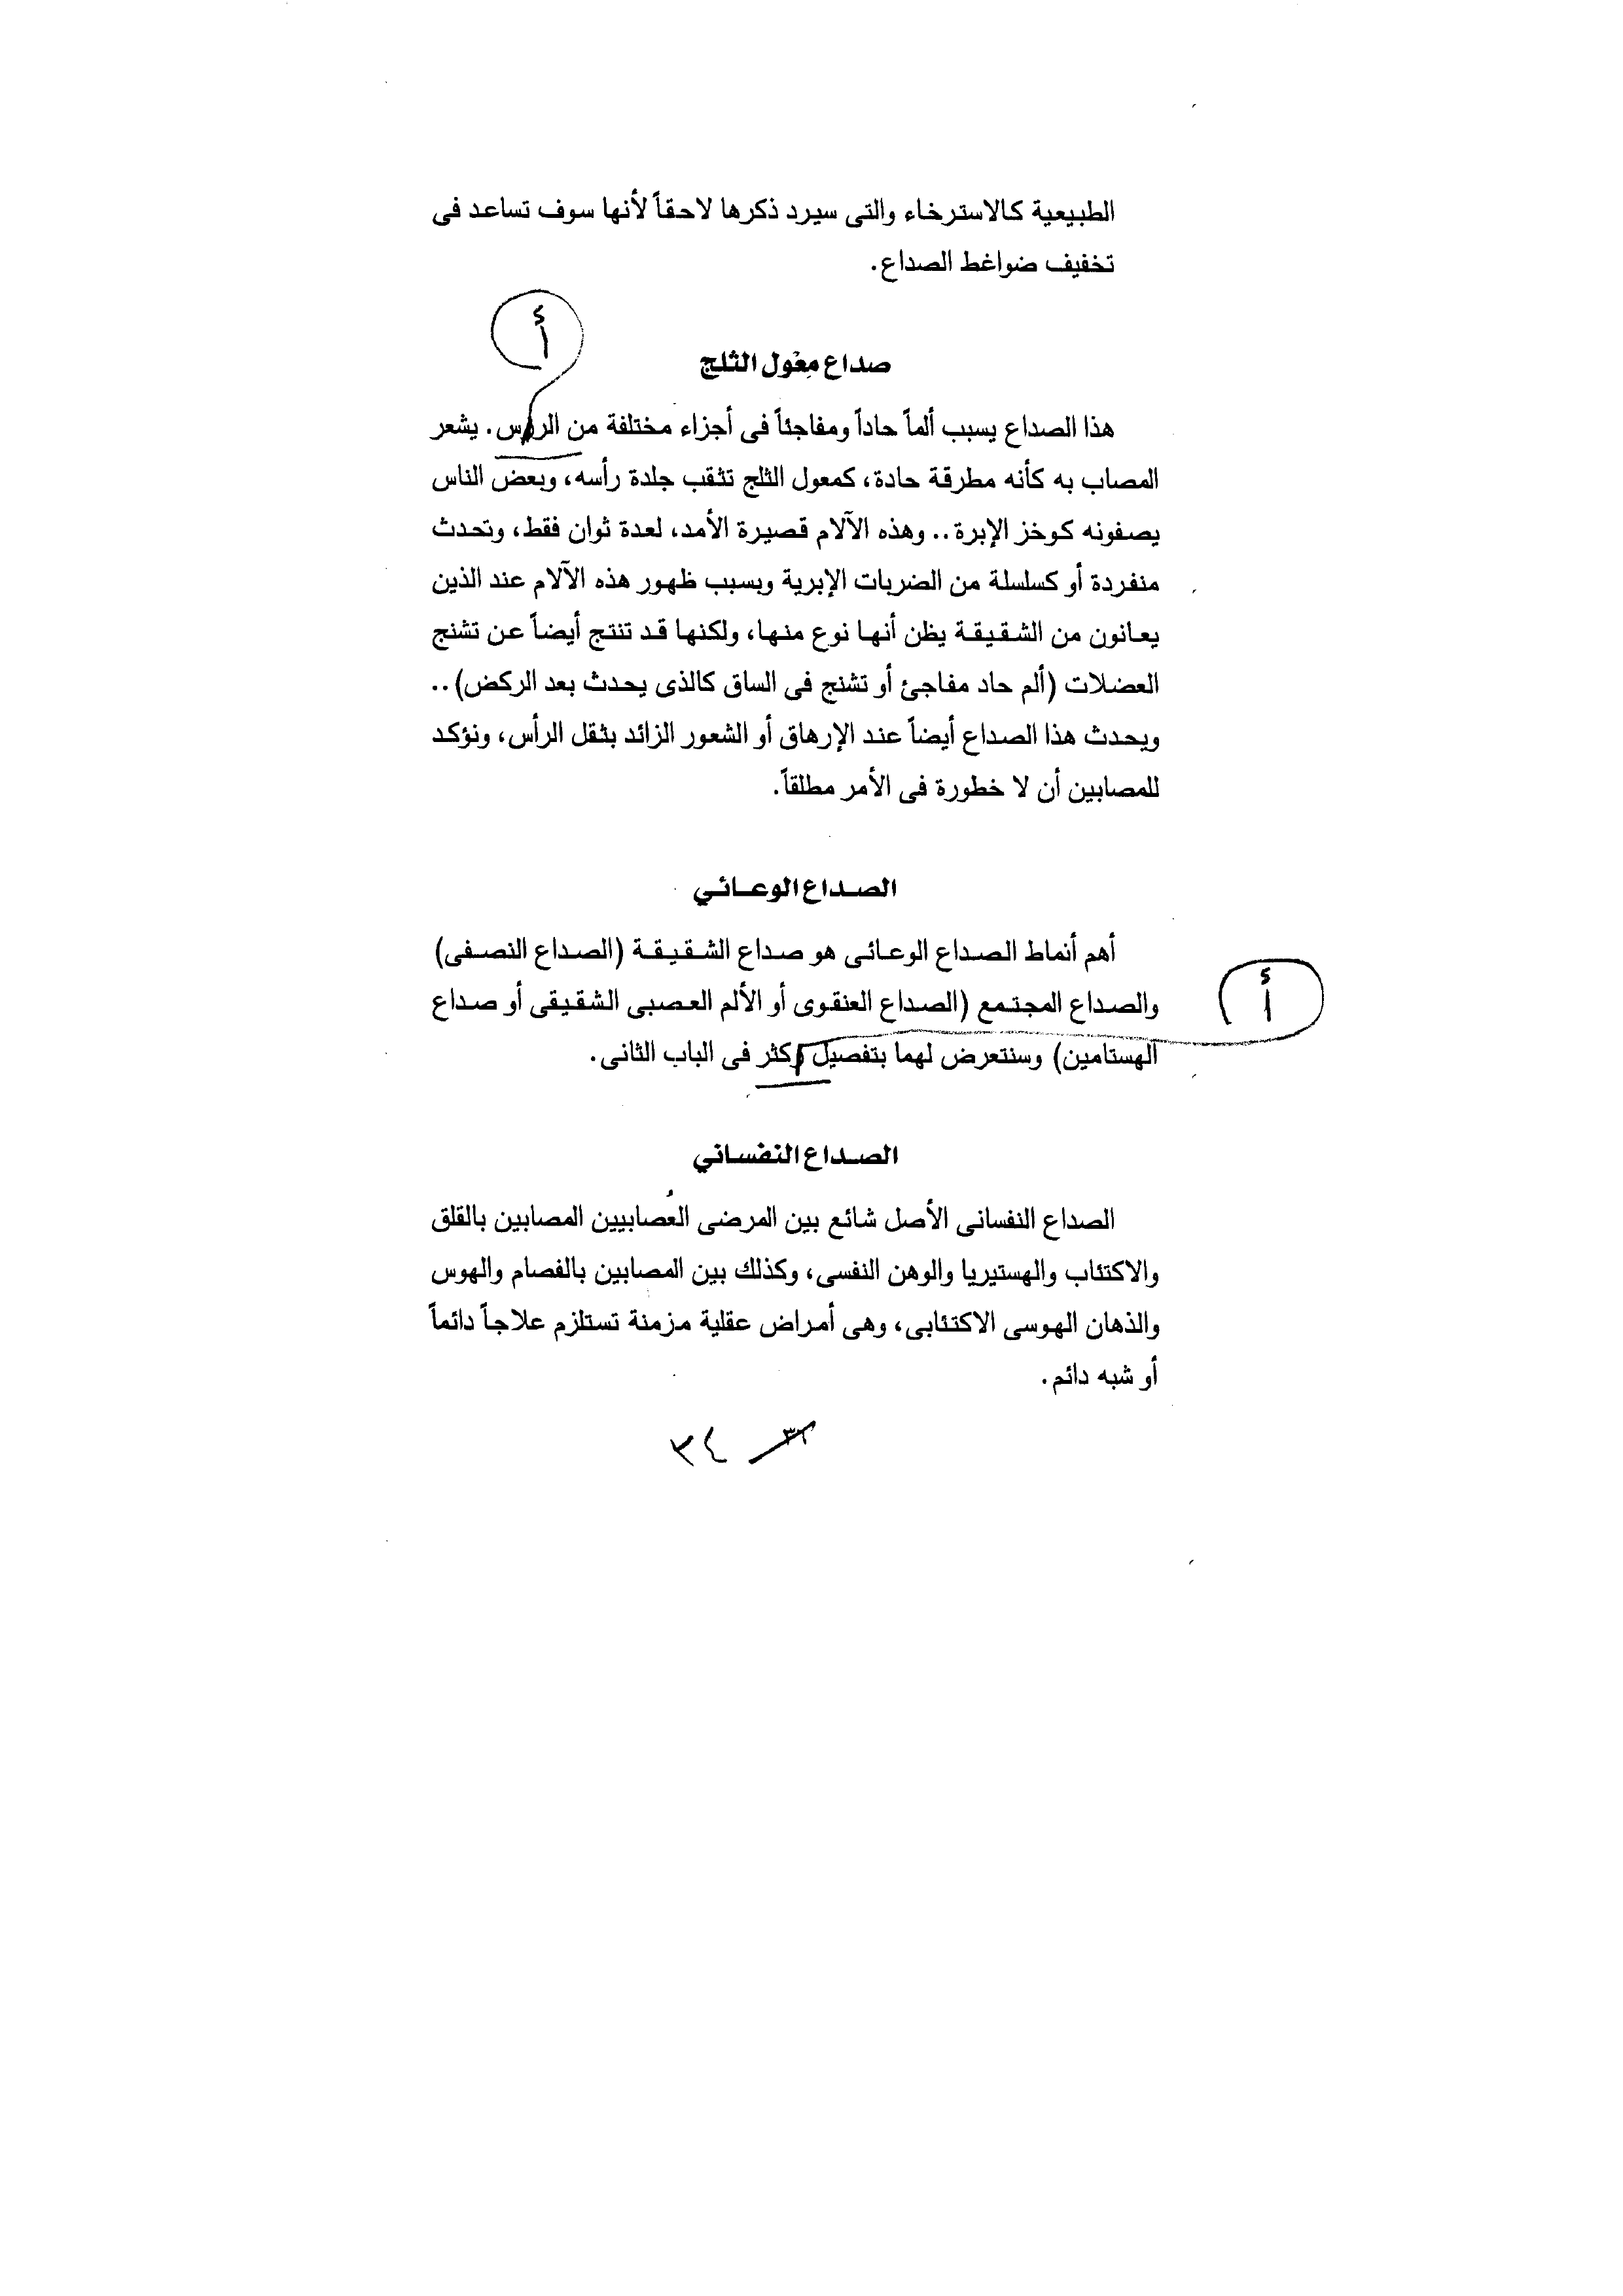 الطبيعية كالاسترخاء والتى سيرد ذكرها لاحقاً لأنها سوف تساعد فى
تخفيف ضواغط الصداع.
أ
صداع مِعْول الثلج
هذا الصداع يسبب ألماً حاداً ومفاجئاً فى أجزاء مختلفة من الرأس. يشعر
المصاب به كأنه مطرقة حادة، كمعول الثلج تثقب جلدة رأسه، وبعض الناس
يصفونه كوخز الإبرة.. وهذه الآلام قصيرة الأمد، لعدة ثوان فقط، وتحدث
منفردة أو كسلسلة من الضربات الإبرية وبسبب ظهور هذه الآلام عند الذين
يعانون من الشقيقة يظن أنها نوع منها، ولكنها قد تنتج أيضاً عن تشنج
العضلات (ألم حاد مفاجئ أو تشنج فى الساق كالذى يحدث بعد الركض)..
ويحدث هذا الصداع أيضاً عند الإرهاق أو الشعور الزائد بثقل الرأس، ونؤكد
للمصابين أن لا خطورة فى الأمر مطلقاً.
الصداع الوعائي
أهم أنماط الصداع الوعائى هو صداع الشقيقة (الصداع النصفى)
والصداع المجتمع (الصداع العنقوى أو الألم العصبى الشقيقى أو صداع
أ
الهستامين) وسنتعرض لهما بتفصيل أكثر فى الباب الثانى.
الصداع النفساني
الصداع النفسانى الأصل شائع بين المرضى العُصابيين المصابين بالقلق
والاكتئاب والهستيريا والوهن النفسى، وكذلك بين المصابين بالفصام والهوس
والذهان الهوسى الاكتئابى، وهى أمراض عقلية مزمنة تستلزم علاجاً دائماً
أو شبه دائم.
٣٤